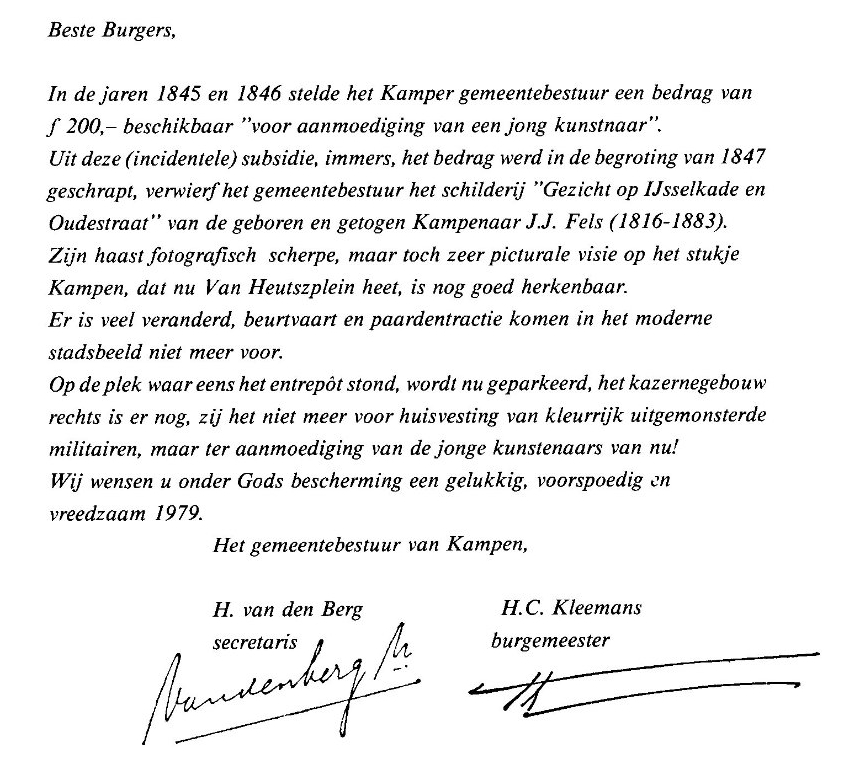 Beste Burgers,
In de jaren 1845 en 1846 stelde het Kamper gemeentebestuur een bedrag van
f 200,– beschikbaar ”voor aanmoediging van een jong kunstnaar”.
Uit deze (incidentele) subsidie, immers, het bedrag werd in de begroting van 1847
geschrapt, verwierf het gemeentebestuur het schilderij ”Gezicht op IJsselkade en
Oudestraat” van de geboren en getogen Kampenaar J.J. Fels (1816-1883).
Zijn haast fotografisch scherpe, maar toch zeer picturale visie op het stukje
Kampen, dat nu Van Heutszplein heet, is nog goed herkenbaar.
Er is veel veranderd, beurtvaart en paardentractie komen in het moderne
stadsbeeld niet meer voor.
Op de plek waar eens het entrepôt stond, wordt nu geparkeerd, het kazernegebouw
rechts is er nog, zij het niet meer voor huisvesting van kleurrijk uitgemonsterde
militairen, maar ter aanmoediging van de jonge kunstenaars van nu!
Wij wensen u onder Gods bescherming een gelukkig, voorspoedig en
vreedzaam 1979.
Het gemeentebestuur van Kampen,
H. van den Berg H.C. Kleemans
secretaris burgemeester
Vandenberg